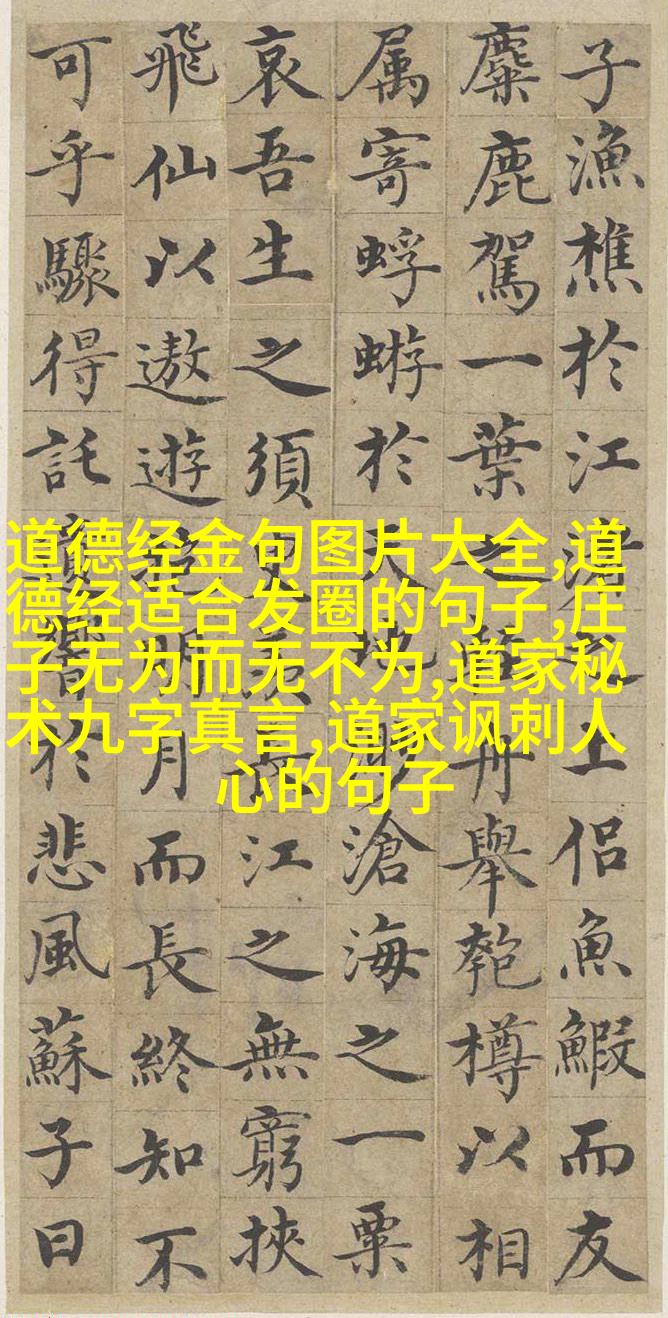 道德经金句图片大全,道
德经适合发圈的句子,庄
子无为而无不为,道家秘
术九字真言,道家讽刺人
心的句子
子漁樵於江渚之上侶魚鰕而友
麋鹿駕一葉之扁舟舉匏樽以相
属寄蜉蝣於天地眇滄海之一粟
哀吾生之須臾羨長江之無窮挾
飛仙以遨遊抱明月而長終知不
可乎驟得託遺響於悲風蘇子曰